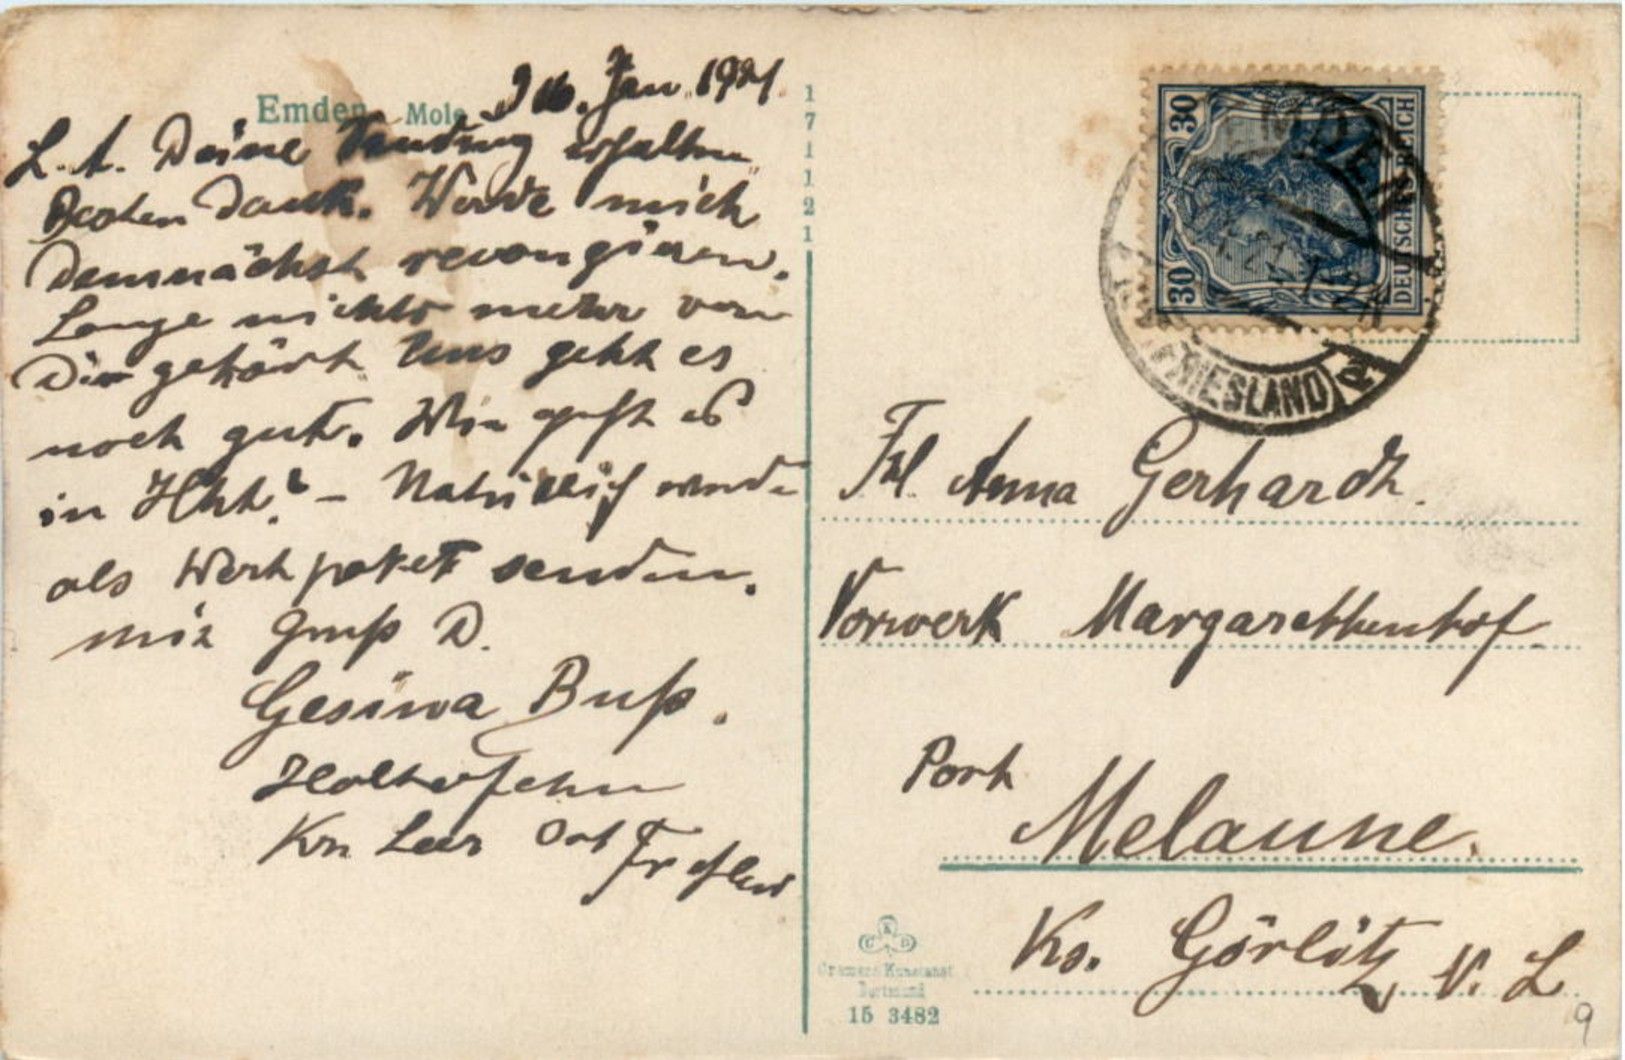 Emden Mole
16. Jan. 1921
L. A. Deine Sendung erhalten
Besten Dank. Werde mich
demnächst revangieren.
Lange nichts mehr von
Dir gehört Uns geht es
noch gut. Wie geht es
in Hht? – Natürlich
als Wertpaket senden.
Gruß D.
Gesina Buß.
Holterfehn
Krs Leer Ostfriesland
171121
30 30
DEUTSCHES REICH
EMDEN
FRIESLAND
Frl. Anna Gerhardt.
Vorwerk Margarethenhof
Post
Melaune.
Ks. Görlitz N. L
CKD
Cramers Kunstanst
Dortmund
15 3482
9